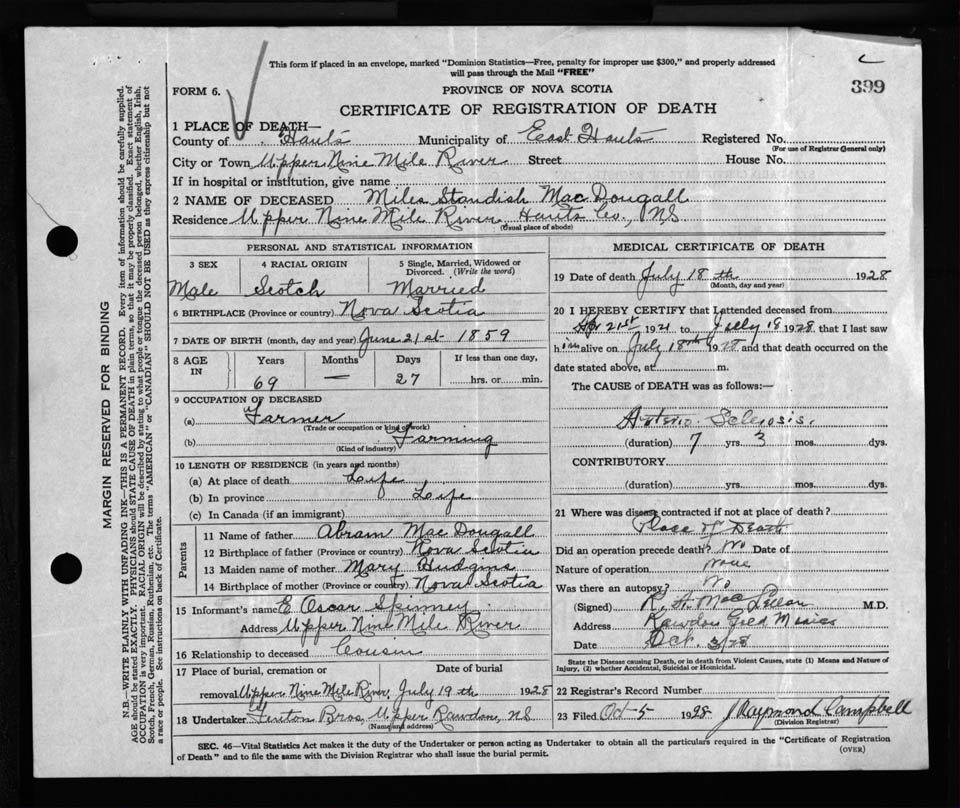 This form if placed in an envelope, marked "Dominion Statistics—Free, penalty for improper use $300," and properly addressed
will pass through the Mail "FREE"
399
FORM 6.
PROVINCE OF NOVA SCOTIA
CERTIFICATE OF REGISTRATION OF DEATH
1 PLACE OF DEATH—
County of Hants Municipality of East Hants Registered No.
(For use of Registrar General only)
City or Town Upper Nine Mile River Street House No.
If in hospital or institution, give name
2 NAME OF DECEASED Miles Standish MacDougall
Residence Upper Nine Mile River Hants Co., NS
(Usual place of abode)
PERSONAL AND STATISTICAL INFORMATION
3 SEX 4 RACIAL ORIGIN 5 Single, Married, Widowed or
Divorced. (Write the word)
Male Scotch Married
6 BIRTHPLACE (Province or country) Nova Scotia
7 DATE OF BIRTH (month, day and year) June 21st 1859
8 AGE IN Years Months Days If less than one day,
69 — 27 hrs. or min.
9 OCCUPATION OF DECEASED
(a) Farmer
(Trade or occupation or kind of work)
(b) Farming
(Kind of industry)
10 LENGTH OF RESIDENCE (in years and months)
(a) At place of death Life
(b) In province Life
(c) In Canada (if an immigrant)
Parents
11 Name of father Abram MacDougall
12 Birthplace of father (Province or country) Nova Scotia
13 Maiden name of mother Mary Hudgins
14 Birthplace of mother (Province or country) Nova Scotia
15 Informant's name E Oscar Spinney
Address Upper Nine Mile River
16 Relationship to deceased Cousin
17 Place of burial, cremation or Date of burial
removal Upper Nine Mile River, July 19th 1928
18 Undertaker Fenton Bros, Upper Rawdon, NS
(Name and address)
MEDICAL CERTIFICATE OF DEATH
19 Date of death July 18th 1928
(Month, day and year)
20 I HEREBY CERTIFY that I attended deceased from
21st 1921 to July 18 1928, that I last saw
him alive on July 18th 1928 and that death occurred on the
date stated above, at m.
The CAUSE OF DEATH was as follows:—
Arterio Sclerosis.
(duration) 7 yrs. 3 mos. dys.
CONTRIBUTORY
(duration) yrs. mos. dys.
21 Where was disease contracted if not at place of death?
Place of Death
Did an operation precede death? No Date of
Nature of operation none
Was there an autopsy? No
(Signed) R. A. MacLellan M.D.
Address Rawdon Gold Mines
Date Oct. 3/28
State the Disease causing Death, or in death from Violent Causes, state (1) Means and Nature of
Injury, (2) whether Accidental, Suicidal or Homicidal.
22 Registrar's Record Number
23 Filed Oct 5 1928 J Raymond Campbell
(Division Registrar)
SEC. 46—Vital Statistics Act makes it the duty of the Undertaker or person acting as Undertaker to obtain all the particulars required in the "Certificate of Registration
of Death" and to file the same with the Division Registrar who shall issue the burial permit. (OVER)
MARGIN RESERVED FOR BINDING
N.B.—WRITE PLAINLY WITH UNFADING INK—THIS IS A PERMANENT RECORD. Every item of information should be carefully supplied.
AGE should be stated EXACTLY. PHYSICIANS should STATE CAUSE OF DEATH in plain terms, so that it may be properly classified. Exact statement of
OCCUPATION is very important. RACIAL ORIGIN will be described by stating to what people or tongue the deceased person belonged, whether English, Irish,
Scotch, French, German, Russian, Ruthenian, etc. The terms "AMERICAN" or "CANADIAN" SHOULD NOT BE USED as they express citizenship but not
a race or people. See instructions on back of Certificate.